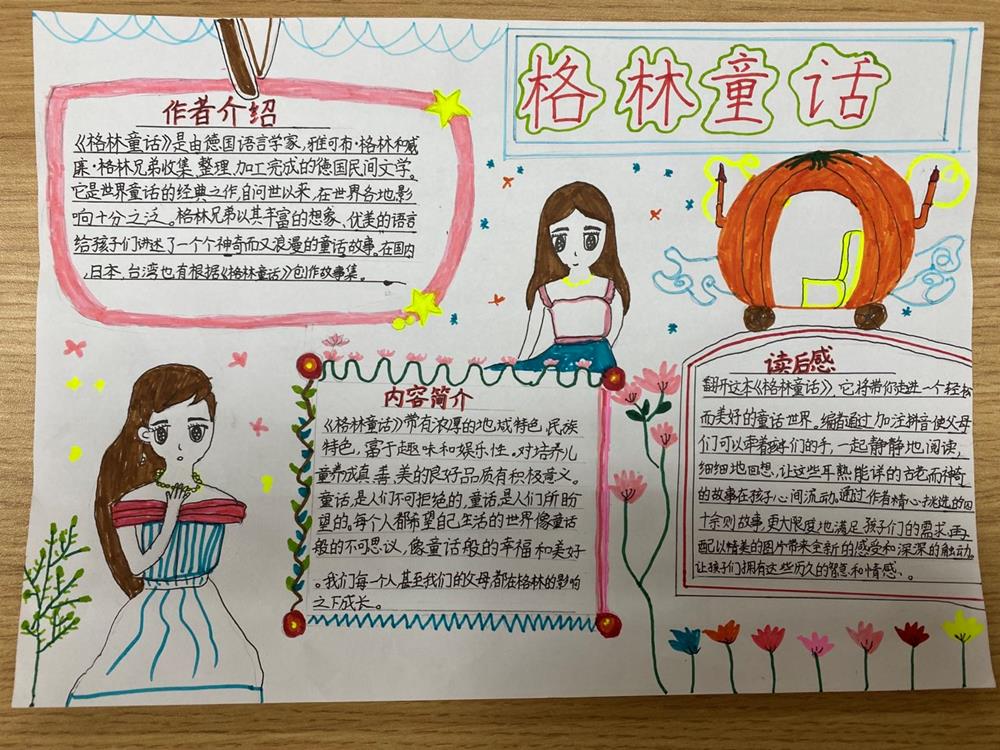 格林童话
作者介绍
《格林童话》是由德国语言学家,雅可布·格林和威
廉·格林兄弟收集、整理、加工完成的德国民间文学。
它是世界童话的经典之作,自问世以来,在世界各地影
响十分之泛。格林兄弟以其丰富的想象、优美的语言
给孩子们讲述了一个个神奇而又浪漫的童话故事。在国内
,日本、台湾也有根据《格林童话》创作故事集。
内容简介
《格林童话》带有浓厚的地域特色,民族
特色,富于趣味和娱乐性。对培养儿
童养成真、善、美的良好品质有积极意义。
童话,是人们不可拒绝的,童话,是人们所盼
望的。每个人都希望自己生活的世界像童话
般的不可思议,像童话般的幸福和美好
。我们每一个人甚至我们的父母都在格林的影响
之下成长。
读后感
翻开这本《格林童话》,它将带你走进一个轻松
而美好的童话世界。编者通过加注拼音使父母
们可以牵着孩们的手,一起静静地阅读,
细细地回想,让这些耳熟能详的古老而神奇
的故事在孩子心间流动。通过作者精心挑选的四
十余则故事,更大限度地满足孩子们的需求,再
配以精美的图片带来全新的感受和深深的触动。
让孩子们拥有这些历久的智慧和情感、。